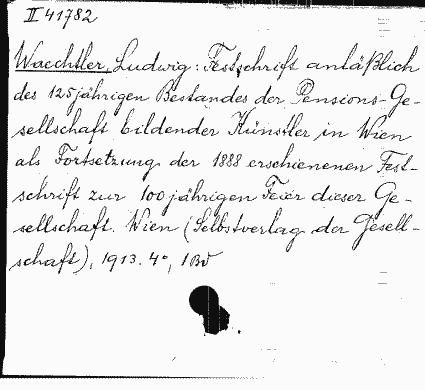 II 41782
Waechtler, Ludwig: Festschrift anläßlich
des 125jährigen Bestandes der Pensions-Ge-
sellschaft bildender Künstler in Wien
als Fortsetzung der 1888 erschienenen Fest-
schrift zur 100jährigen Feier dieser Ge-
sellschaft. Wien (Selbstverlag der Gesell-
schaft), 1913. 4°, 1 Bd